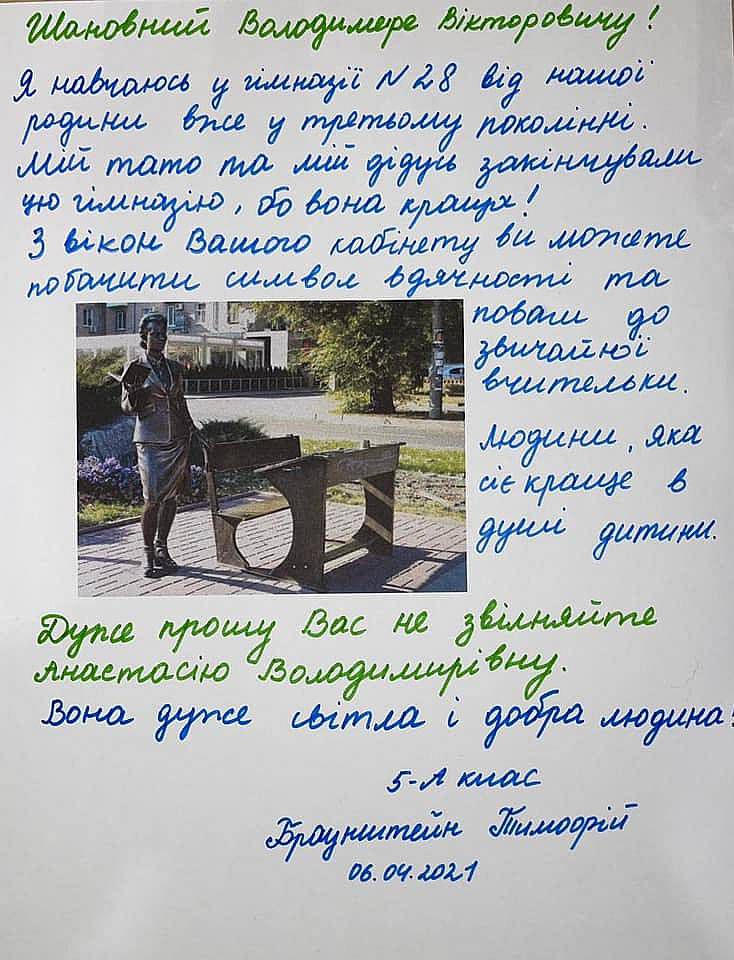 Шановний Володимере Вікторовичу!
Я навчаюсь у гімназії N 28 від нашої
родини вже у третьому поколінні.
Мій тато та мій дідусь закінчували
цю гімназію, бо вона краща!
З вікон Вашого кабінету ви можете
побачити символ вдячності та
поваги до
звичайної
вчительки.
Людини, яка
сіє краще в
душі дитини.
Дуже прошу Вас не звільняйте
Анастасію Володимирівну.
Вона дуже світла і добра людина!
5-А клас
Браунштейн Тимофій
06.04.2021